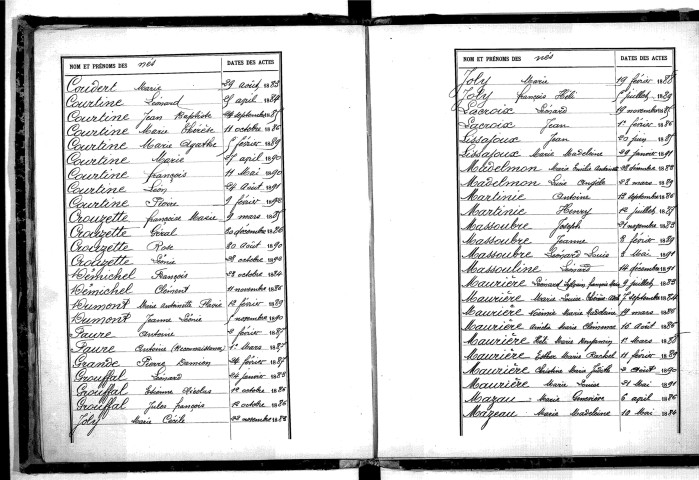 NOM ET PRÉNOMS DES nés DATES DES ACTES
Coudert Marie 29 août 1883
Courtine Léonard 5 april 1884
Courtine Jean Baptiste 24 septembre 1885
Courtine Marie Thérèse 11 octobre 1886
Courtine Marie Agathe 5 février 1889
Courtine Marie 25 april 1890
Courtine françois 11 Mai 1890
Courtine Léon 24 Août 1891
Courtine Flavie 9 février 1892
Crouzette françoise Marie 9 mars 1885
Crouzette Géral 20 décembre 1886
Crouzette Rose 20 août 1890
Crouzette Léonie 28 octobre 1890
Démichel François 28 octobre 1884
Démichel Clément 11 novembre 1886
Dumont Marie Antoinette Flavie 12 février 1889
Dumont Jeanne Léonie novembre 1890
Faure Antoine 2 février 1887
Faure Antoine (Reconnaissance) 1er Mars 1887
Grande Pierre Damien 24 février 1887
Grouffal Léonard 24 janvier 1883
Grouffal Etienne Nicolas 12 octobre 1886
Grouffal Jules françois 12 octobre 1886
Joly Marie Cécile 22 novembre 1882
NOM ET PRÉNOMS DES nés DATES DES ACTES
Joly Marie 19 février 1888
Joly françois Héli juillet 1889
Lacroix Léonard 19 novembre 1885
Lacroix Jean 1er février 1886
Lissajoux Jean 20 juin 1885
Lissajoux Marie Madeleine 29 janvier 1891
Madelmon Marie Emilie Antoinette 28 décembre 1882
Madelmon Louis Angèle 28 mars 1884
Martinie Antoine 12 septembre 1886
Martinie Henry 12 juillet 1887
Massoubre Joseph 21 novembre 1883
Massoubre Jeanne 8 février 1889
Massoubre Léonard Louis 8 Mai 1891
Massouline Léonard 14 décembre 1891
Maurière Léonard françois 9 juillet 1883
Maurière Marie Louise 7 septembre 1884
Maurière Noémie Marie Madeleine 19 mars 1886
Maurière Amélie Marie Clémence 10 Août 1886
Maurière Félix Marie Benjamin 1er Mars 1888
Maurière Esther Marie Rachel 11 février 1889
Maurière Christine Marie Judith 2 Août 1890
Maurière Marie Louise 21 Mai 1891
Mazau Marie Geneviève 6 april 1886
Mazeau Marie Madeleine 10 Mai 1884